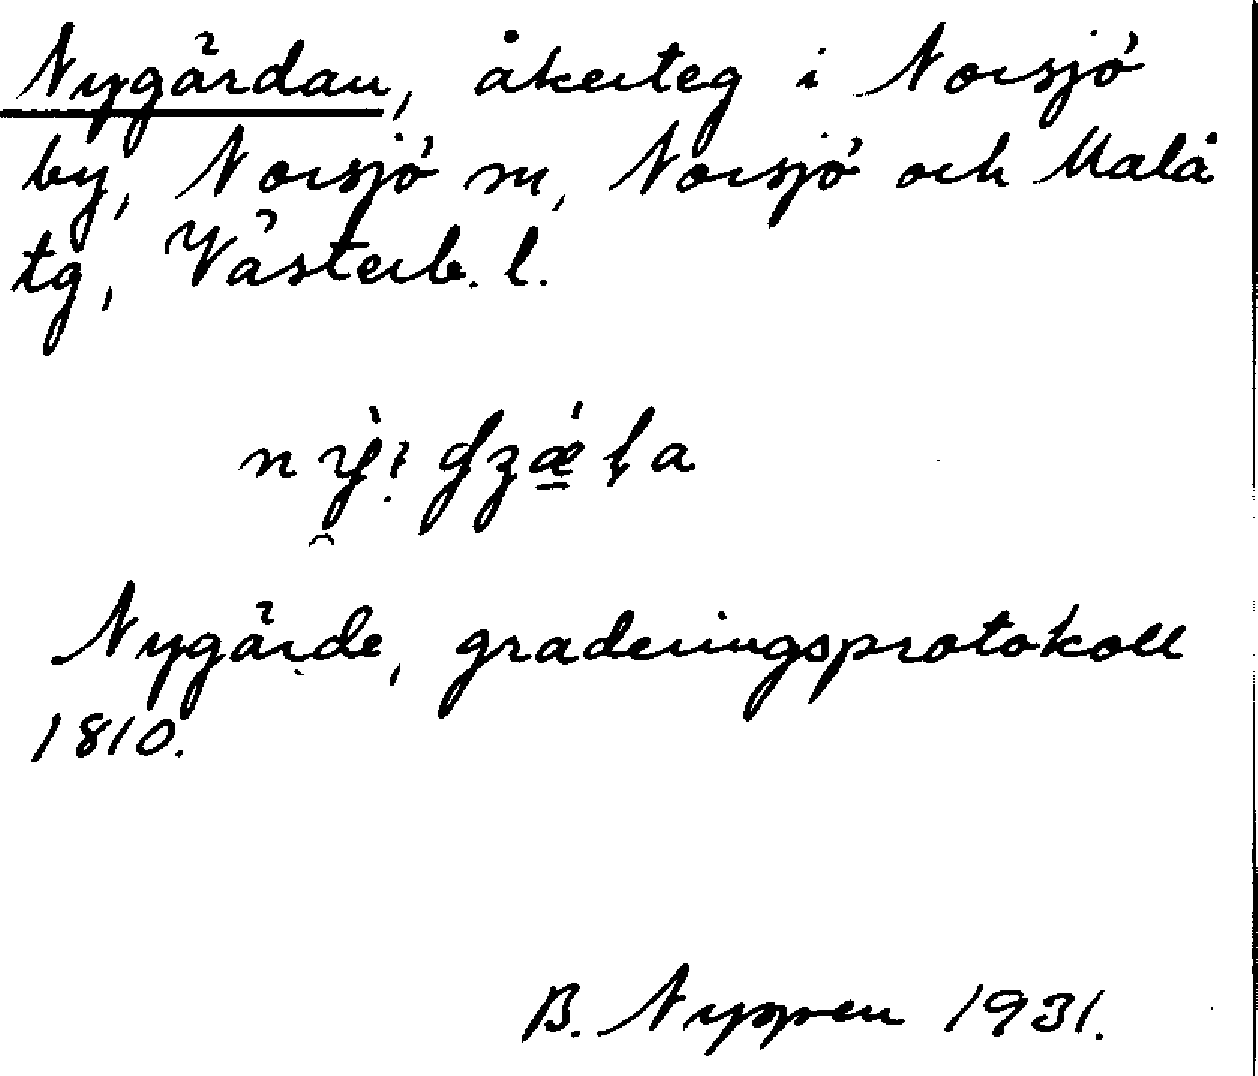 Nygärdan, åkerteg i Norsjö
by, Norsjö sn, Norsjö och Malå
tg, Västerb. l.
Nygärde, graderingsprotokoll
1810.
B. Nyppen 1931.